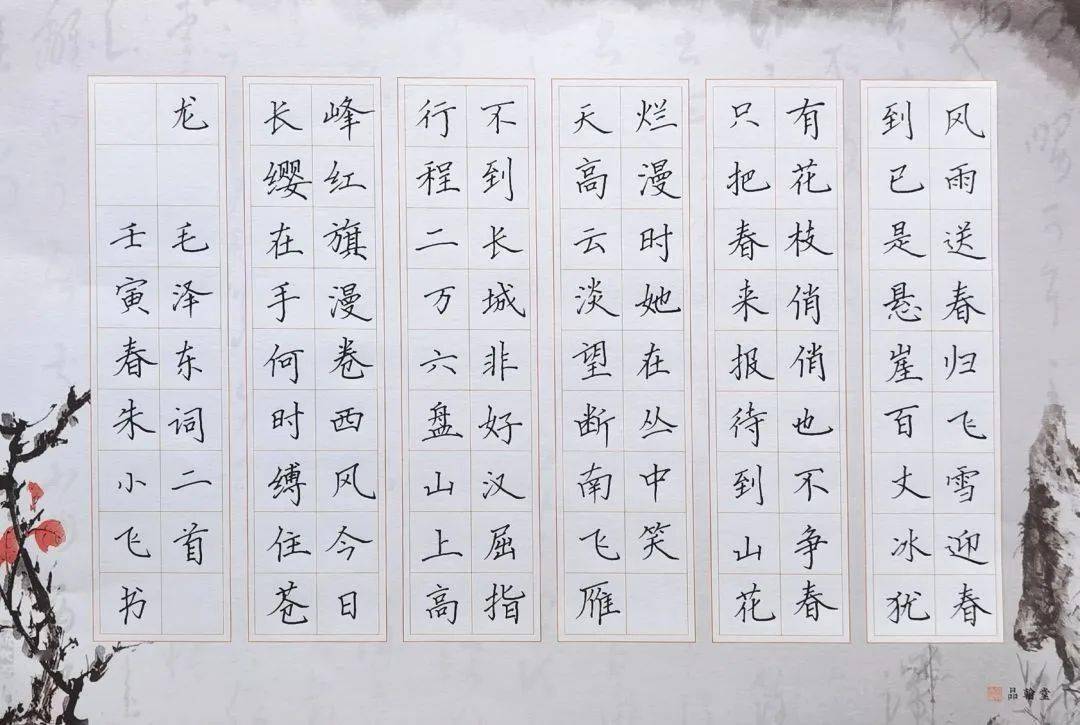 风雨送春归飞雪迎春
到已是悬崖百丈冰犹
有花枝俏俏也不争春
只把春来报待到山花
烂漫时她在丛中笑
天高云淡望断南飞雁
不到长城非好汉屈指
行程二万六盘山上高
峰红旗漫卷西风今日
长缨在手何时缚住苍
龙 毛泽东词二首
壬寅春朱小飞书
品翰堂